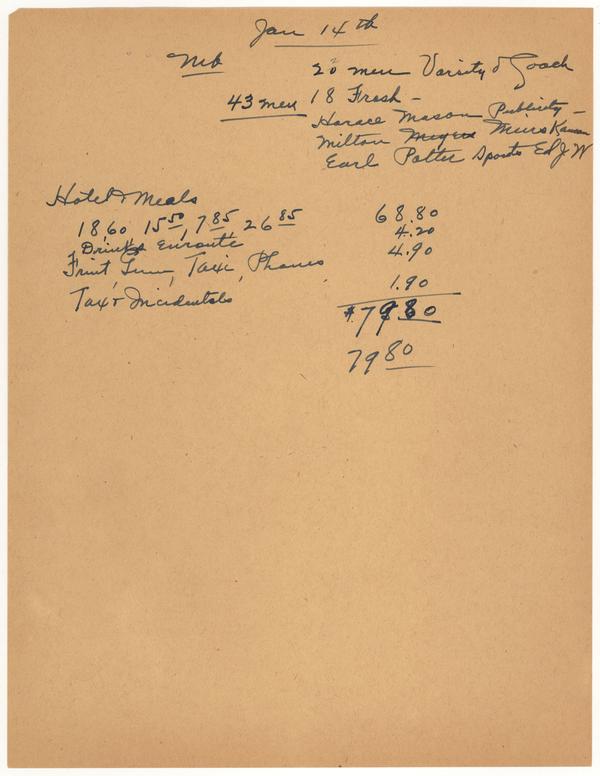 Jan 14th
Mb 20 men Varsity & Coach
43 men 18 Frosh -
Horace Mason Publicity -
Milton Meyers Meirs Kansan
Earl Potter Sports Ed J W
Hotel & Meals
18,60 15 50, 7 85, 26 85 68.80
Drinks Enroute 4.20
Fruit Gum, Taxi, Phones 4.90
Tax & Incidentals 1.90
$79.80
79 80